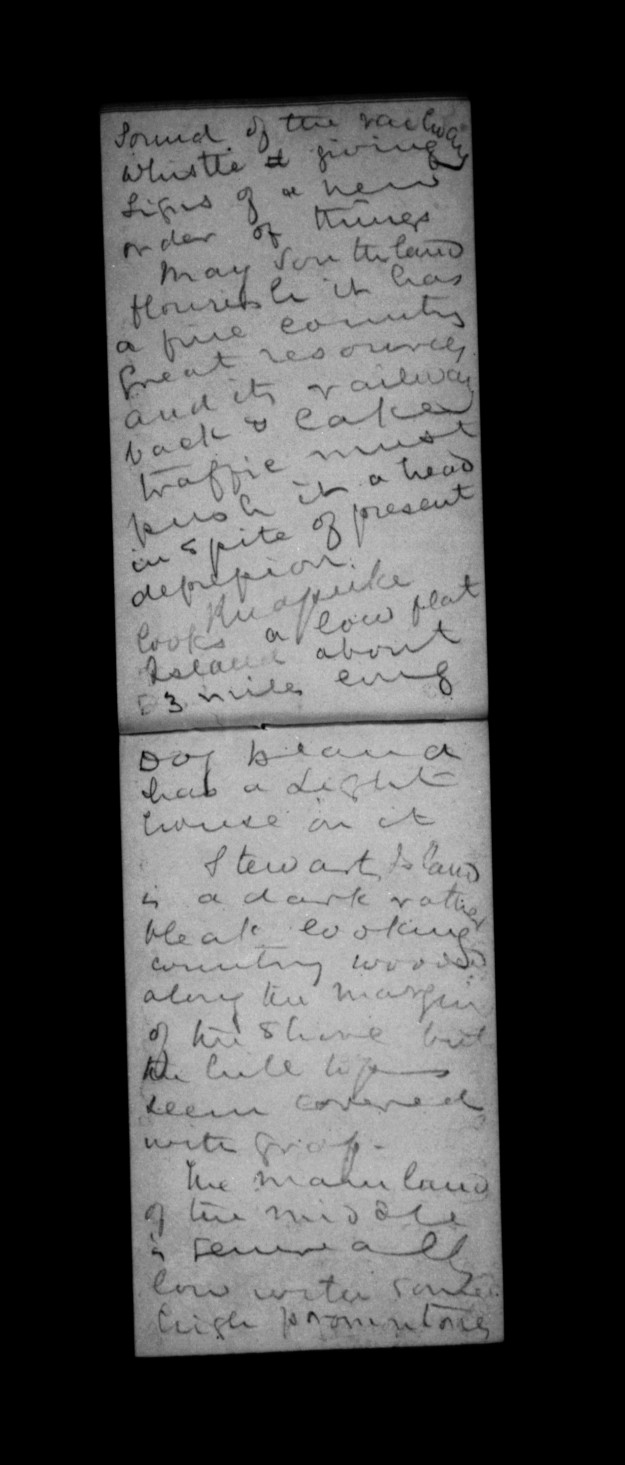 Sound of the railway
whistle & giving
signs of a new
order of things
May Southland
flourish it has
a fine country
Great resources
and its railway
back & Lake
traffic must
push it a head
in spite of present
depression.
Ruapuke
looks a low flat
Island about
3 miles long
Dog Island
has a Light
house on it
Stewart Island
is a dark rather
bleak looking
country wooded
along the margin
of the shore but
the hill tops
seem covered
with grass -
The main land
of the middle
is generally
low with some
high promontories